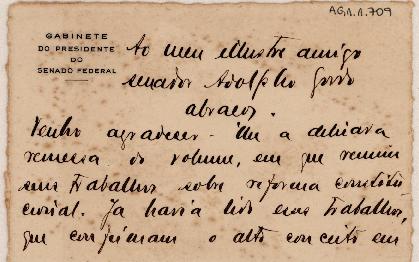 AG.1.1.709
GABINETE
DO PRESIDENTE
DO
SENADO FEDERAL
Ao meu illustre amigo
senador Adolpho Gordo
abraços.
Venho agradecer-lhe a
remessa do volume, em que reuniu
seus trabalhos sobre reforma constitu
cional. Ja havia lido esses trabalhos,
que confirmam o alto conceito em